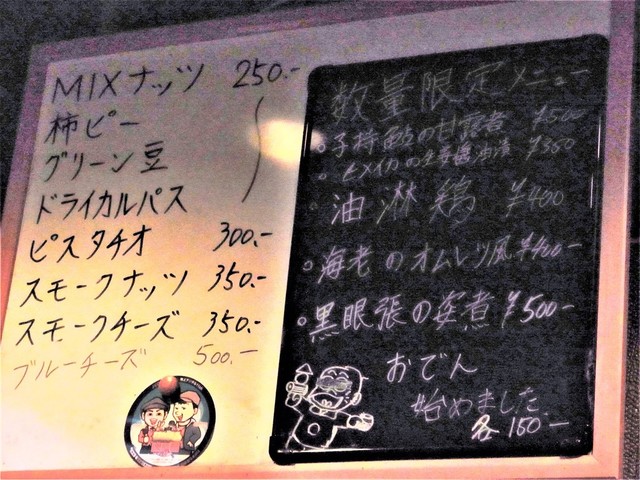 MIXナッツ 250.-
柿ピー
グリーン豆
ドライカルパス
ピスタチオ 300.-
スモークナッツ 350.-
スモークチーズ 350.-
ブルーチーズ 500.-
数量限定メニュー
子持 の甘露煮 ¥500
ヒメイカの生姜醤油漬 ¥350
油淋鶏 ¥400
海老のオムレツ風 ¥400-
黒眼張の姿煮 ¥500-
おでん
始めました
各150.-